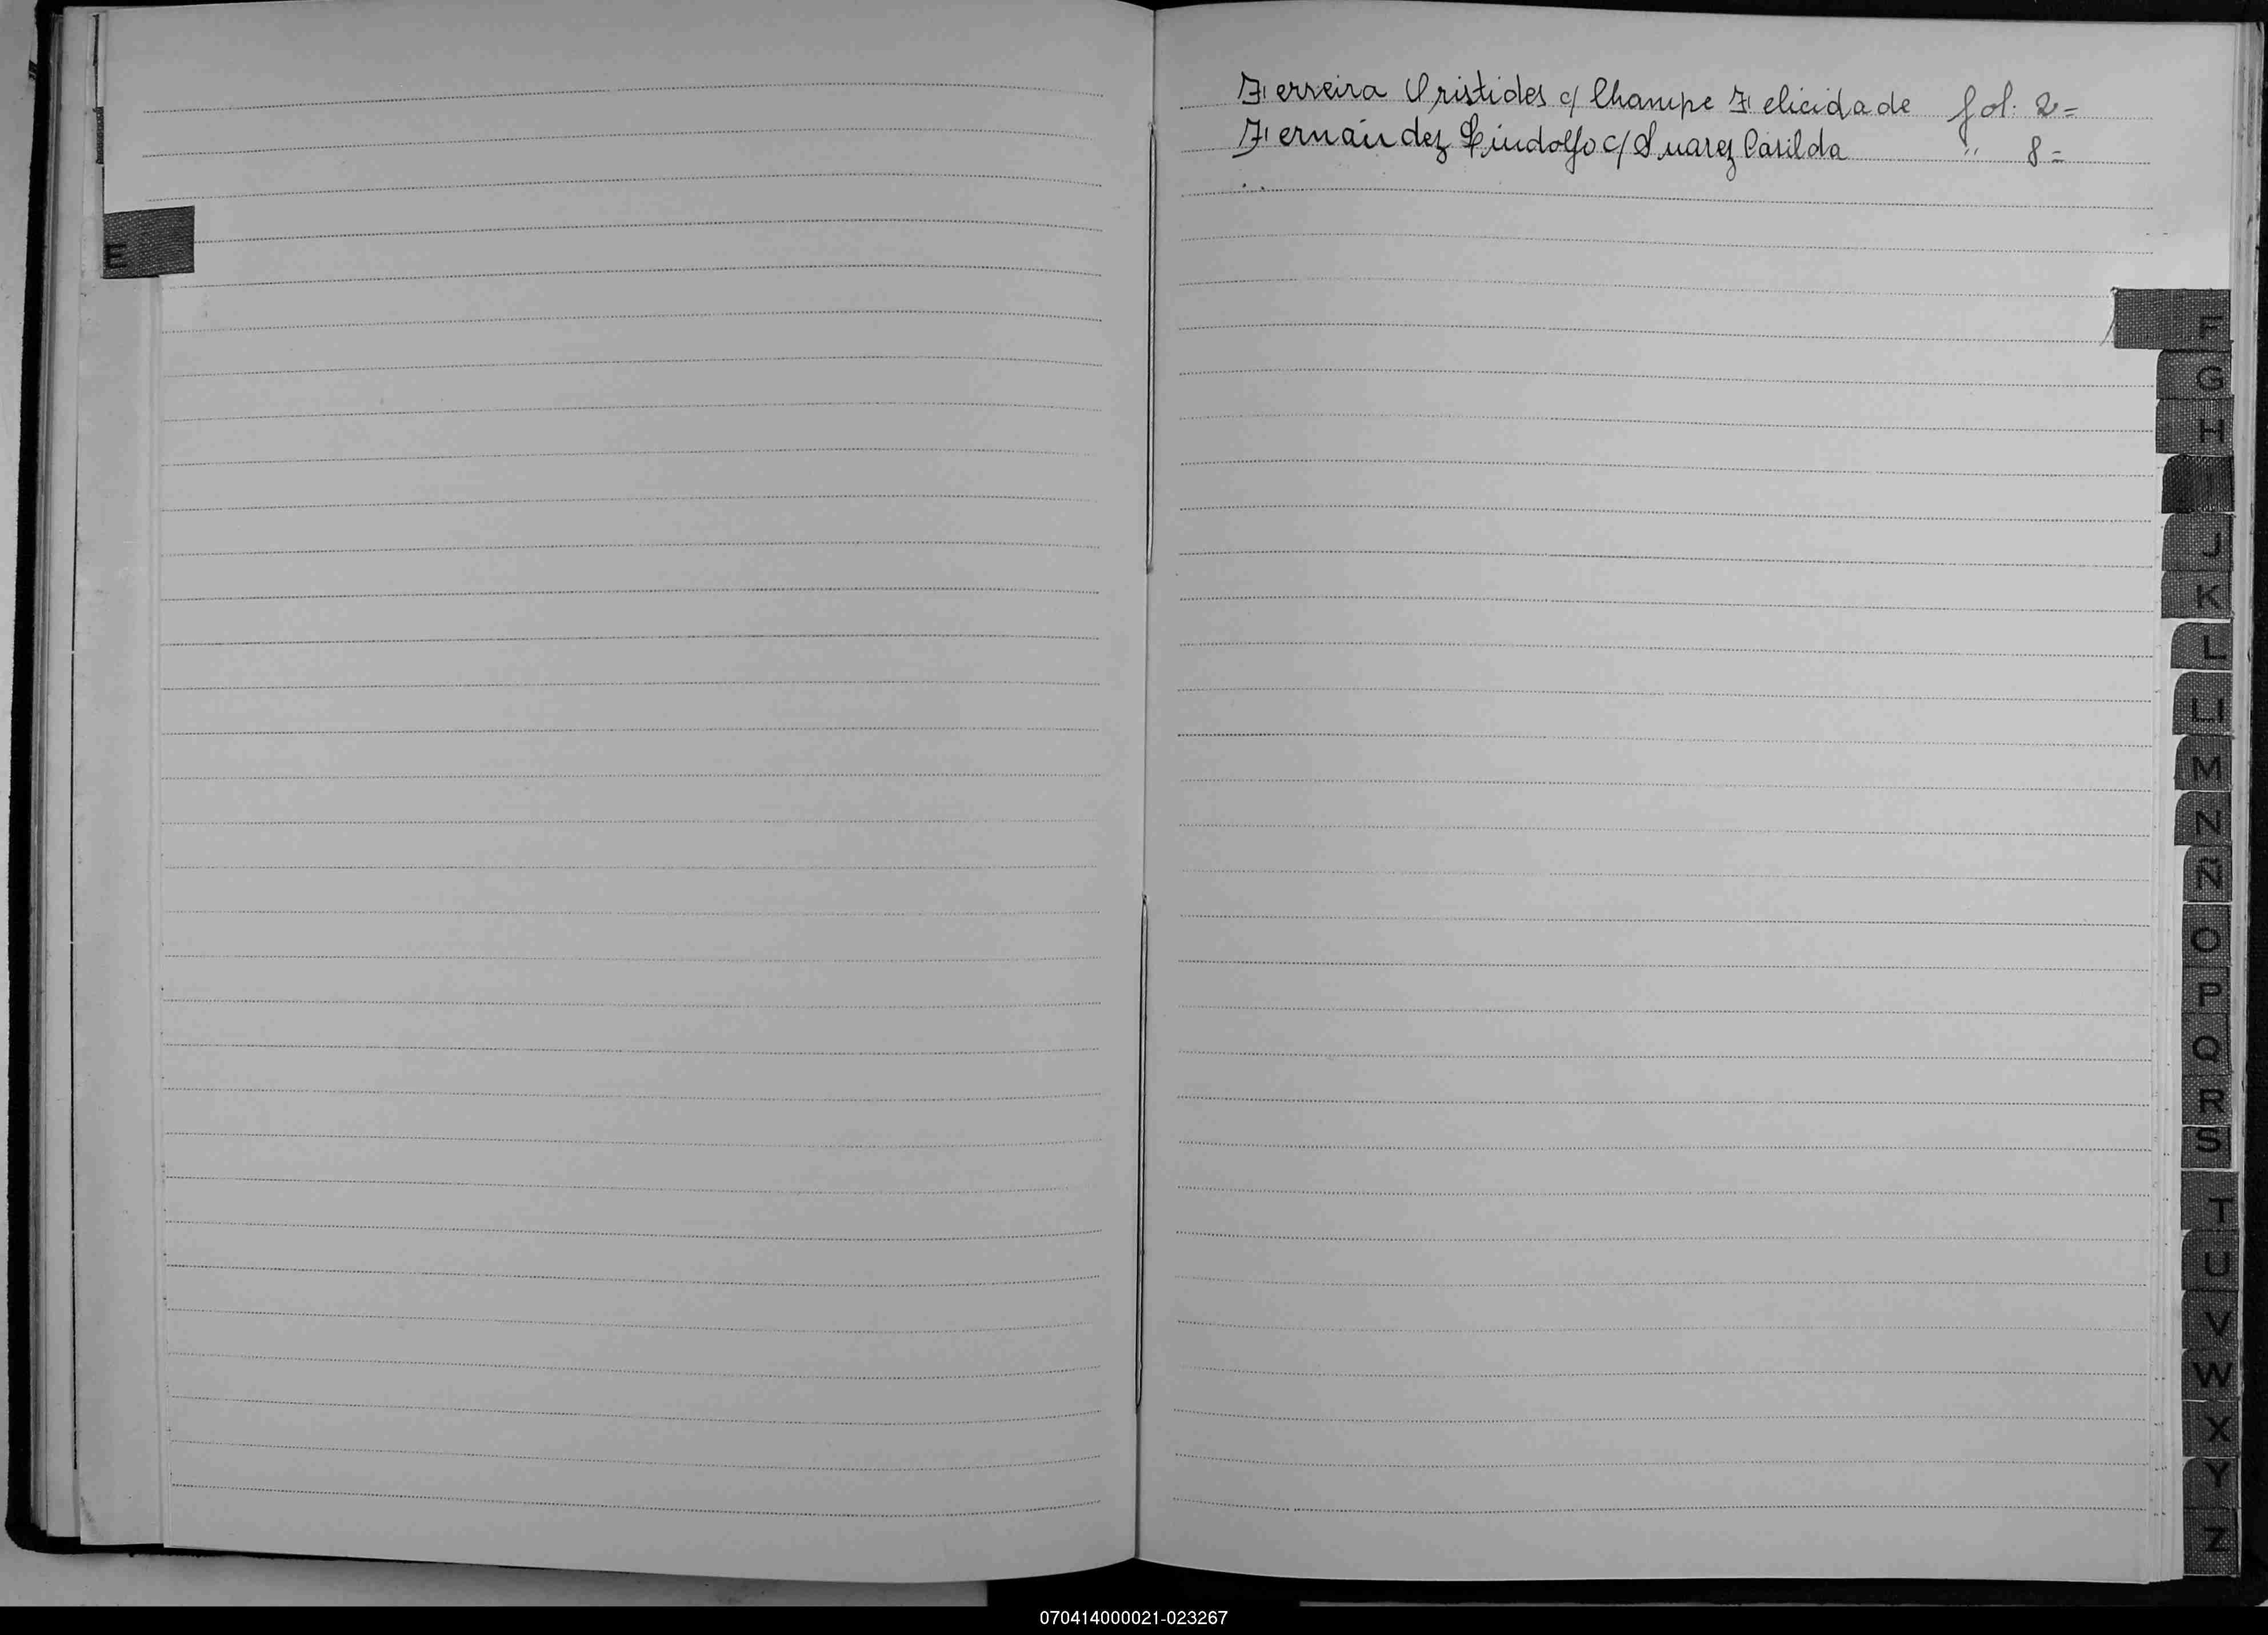 Ferreira Aristides c/ Champe Felicidade fol. 2=
Fernández Lindolfo c/ Suarez Casilda " 8=
E
F
G
H
I
J
K
L
Ll
M
N
Ñ
O
P
Q
R
S
T
U
V
W
X
Y
Z
070414000021-023267